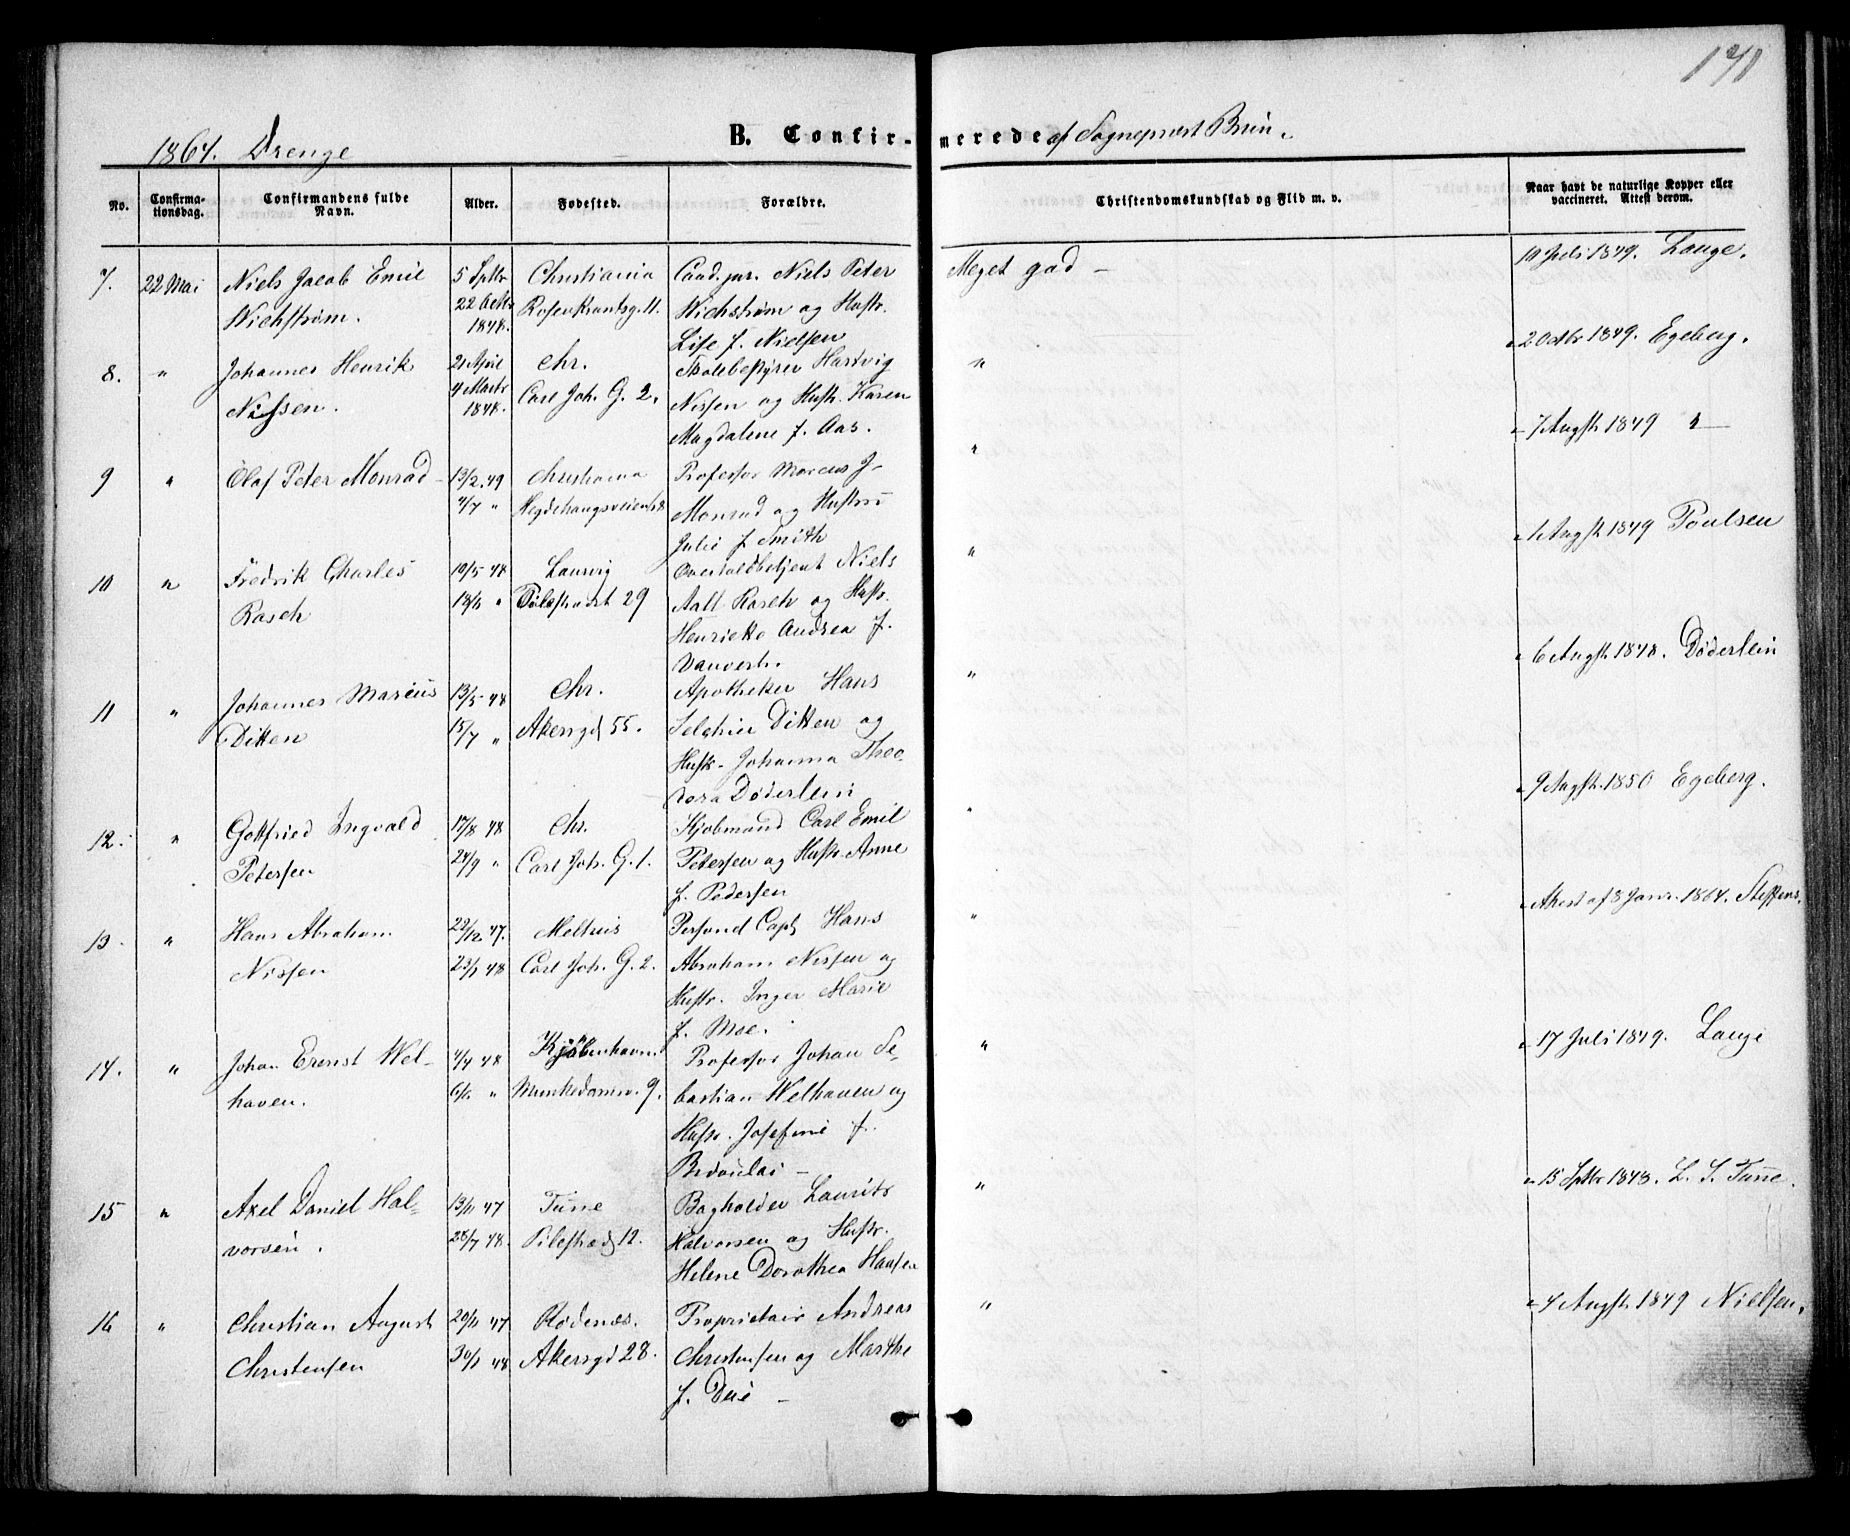 171
1864. Drenge
B. Confirmerede af Sognepræst Brun.
No.
Confirmationsdag.
Confirmandens fulde Navn.
Alder.
Fødested.
Forældre.
Christendomskundskab og Flid m. v.
Naar havt de naturlige Kopper eller vaccineret. Attest derom.
7. 22 Mai Niels Jacob Emil 5 Sptbr Christiania Cand. jur. Niels Peter Meget god – 10 Juli 1849. Lange.
Wichstrøm. 22 Octbr 1848. Rosenkrantsg. 11. Wichstrøm og Hustr.
Lise f. Nielsen
8. " Johannes Henrik 21 April Chr. Skolebestyrer Hartvig " " 2 Octbr 1849. Egeberg.
Nissen. 1848. Carl Joh. G. 2. Nissen og Hustr. Karen
Magdalene f. Aas.
9 " Olaf Peter Monrad 13/2. 49 Christiania Professor Marcus J. " " 7 Augst. 1849 "
4/7 " Hegdehaugsveien Monrad og Hustru
Julie f. Smith
10 " Fredrik Charles 19/5 48 Laurvig Overtoldbetjent Niels " " 1 Augst. 1849 Poulsen
Rasch " Pilestrædet 29 Aall Rasch og Hustr.
Henriette Andrea f.
11 " Johannes Marcus 13/5 48 Chr. Apotheker Hans " " 6 Augst. 1848. Døderlein
Ditten 15/7 " Akersgd 55. Ditten og
Hustr. Johanna Theo-
dora Døderlein
12. " Gottfried Ingvald 17/8 48 Chr. Kjøbmand Carl Emil " " 9 Augst. 1850 Egeberg.
Petersen 24/9 " Carl Joh. G. 1. Petersen og Hustr. Anne
f. Pedersen
13. " Hans Abraham 22/12. 47. Melhus Capt. Hans " " Attest af 8 Janr. 1864. Steffens.
Nissen 23/1 48 Carl Joh. G. 2. Abraham Nissen og
Hustr. Inger Marie
f. Moe.
14. " Johan Ernst Wel- 4/4 48 Kjøbenhavn Professor Johan Se- " " 17 Juli 1849. Lange
haven. " Munkedamsv. 9. bastian Welhaven og
Hustr. Josefine f.
15 " Axel Daniel Hal- 13/11 47 Tune Bogholder Laurits " " 15 Sptbr 1848. Tune.
vorsen. 28/7 48. Pilestræd 12. Halvorsen og Hustr.
Helene Dorothea Hansen
16 " Christian August 29/11 47 Rødenæs. Proprietair Andreas " " 4 Augst. 1849 Nielsen.
Christensen 30/1 48 Akersgd 28. Christensen og Marthe
f. Due –